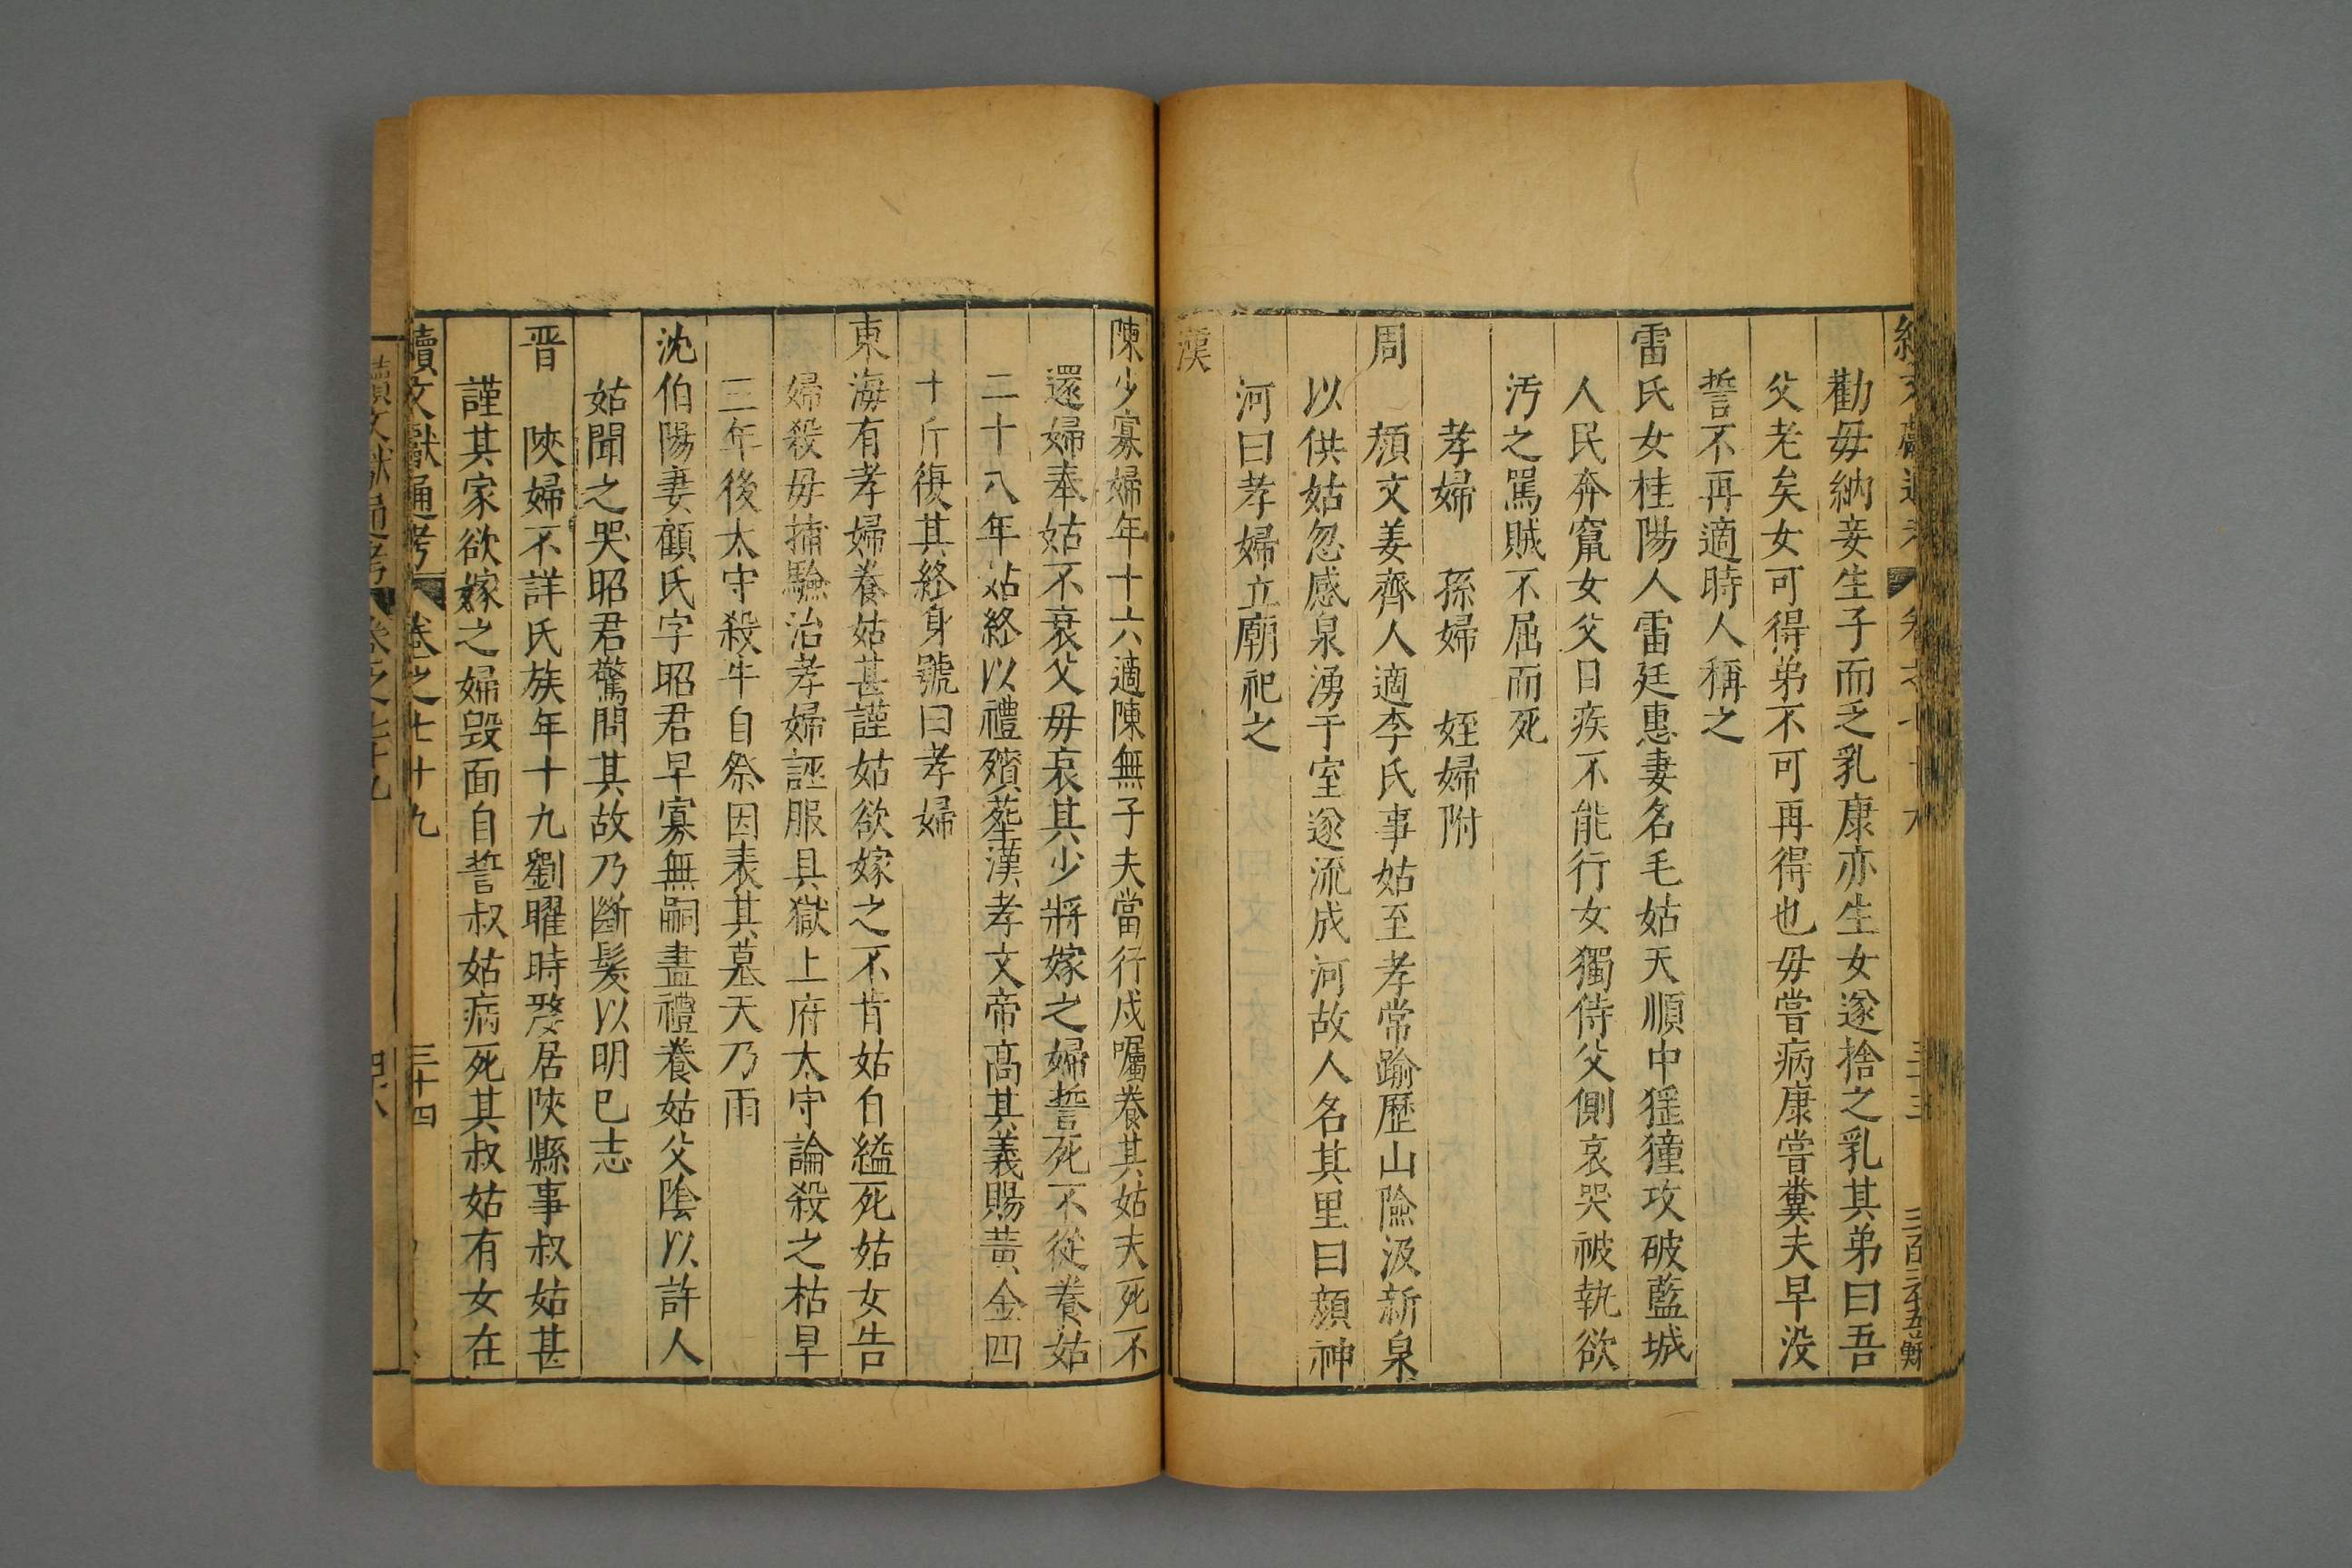 勸毋納妾生子而乏乳康亦生女遂捨之乳其弟曰吾
父老矣女可得弟不可再得也毋嘗病康嘗糞夫早没
誓不再適時人稱之
雷氏女桂陽人雷廷惠妻名毛姑天順中猺獞攻破藍城
人民奔竄女父目疾不能行女獨侍父側哀哭被執欲
汚之罵賊不屈而死
孝婦　孫婦　姪婦附
周　顏文姜齊人適李氏事姑至孝常踰歷山險汲新泉
以供姑忽感泉湧于室遂流成河故人名其里曰顏神
河曰孝婦立廟祀之
漢
陳少寡婦年十六適陳無子夫當行戍囑養其姑夫死不
還婦奉姑不衰父毋哀其少將嫁之婦誓死不從養姑
二十八年姑終以禮殯塟漢孝文帝高其義賜黃金四
十斤復其終身號曰孝婦
東海有孝婦養姑甚謹姑欲嫁之不肯姑自縊死姑女告
婦殺毋捕驗治孝婦誣服具獄上府太守論殺之枯旱
三年後太守殺牛自祭因表其墓天乃雨
沈伯陽妻顧氏字昭君早寡無嗣盡禮養姑父陰以許人
姑聞之哭昭君驚問其故乃斷髮以明己志
晋　陜婦不詳氏族年十九劉曜時嫠居陜縣事叔姑甚
謹其家欲嫁之婦毀面自誓叔姑病死其叔姑有女在
續文獻通考　卷之七十九　三十四